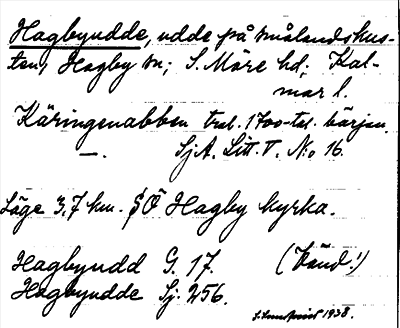 Hagbyudde, udde på smålandskus-
ten, Hagby sn; S. Möre hd; Kal-
mar l.
Käringenabben trol. 1700-tal. början.
—. SjA. Litt. T. No 16.
Läge 3,7 km. SÖ Hagby kyrka.
Hagbyudd G. 17. (känd!)
Hagbyudde Sj. 256.
1938.